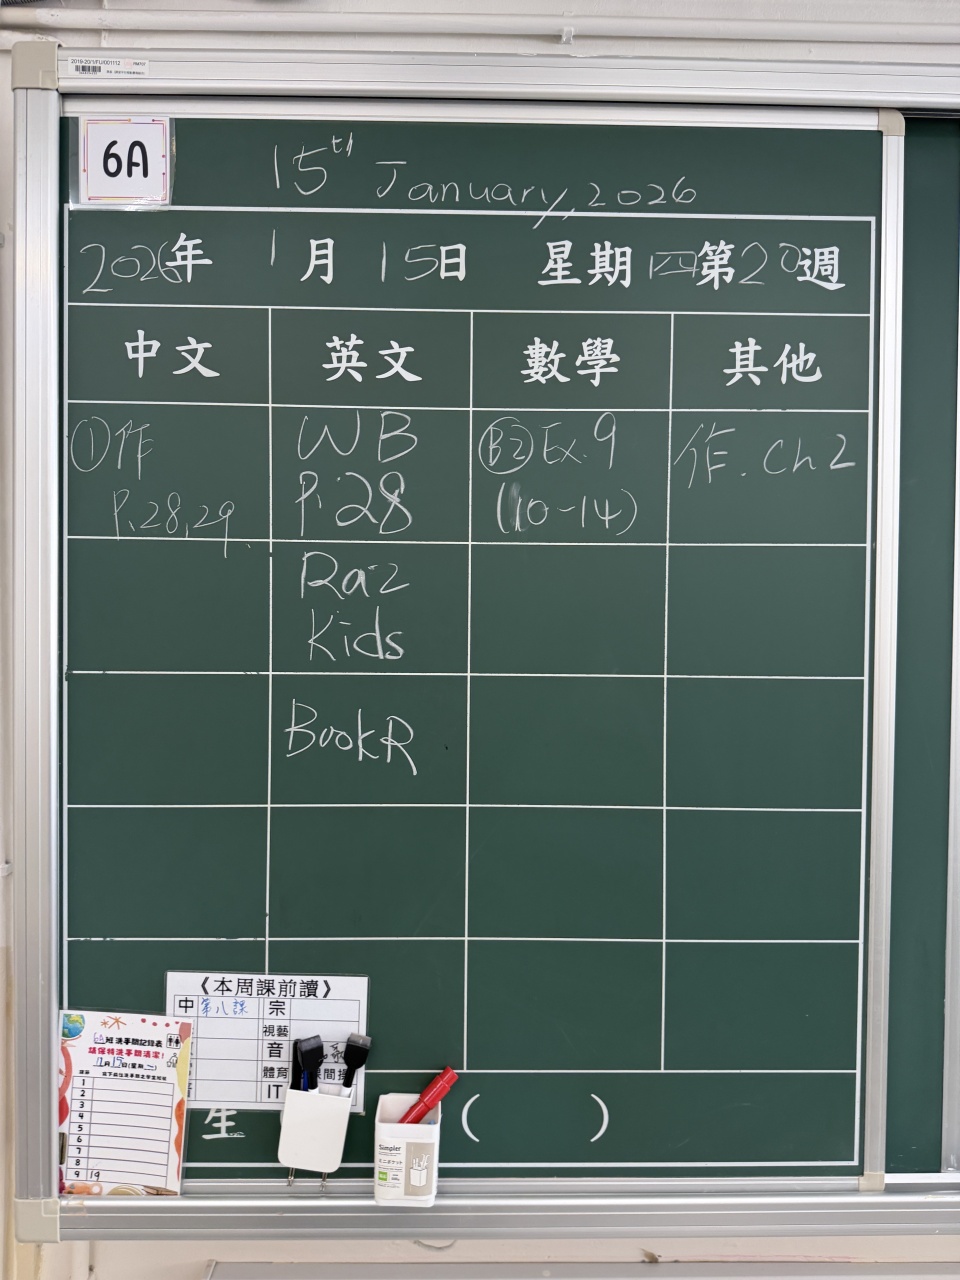 2019-20/1/FU/001112
6A
15th January, 2026
2026年 1月 15日 星期四第20週
中文 英文 數學 其他
①作 WB B2 Ex.9 作. Ch 2
P.28,29. P.28 (10-14)
Raz
Kids
BookR
《本周課前讀》
中 第八課 宗
視藝
音
體育
IT
生 ( )
班洗手間記錄表
請保持洗手間清潔!
1
2
3
4
5
6
7
8
9 19
Simpler
ミニポケット